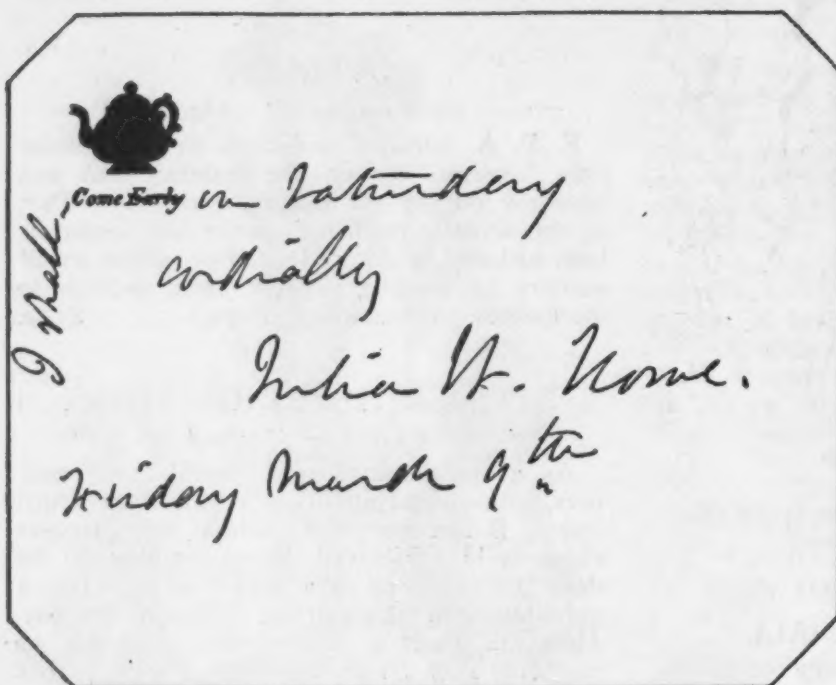 I shall
Come Early on Saturday
cordially
Julia W. Howe.
Friday March 9th